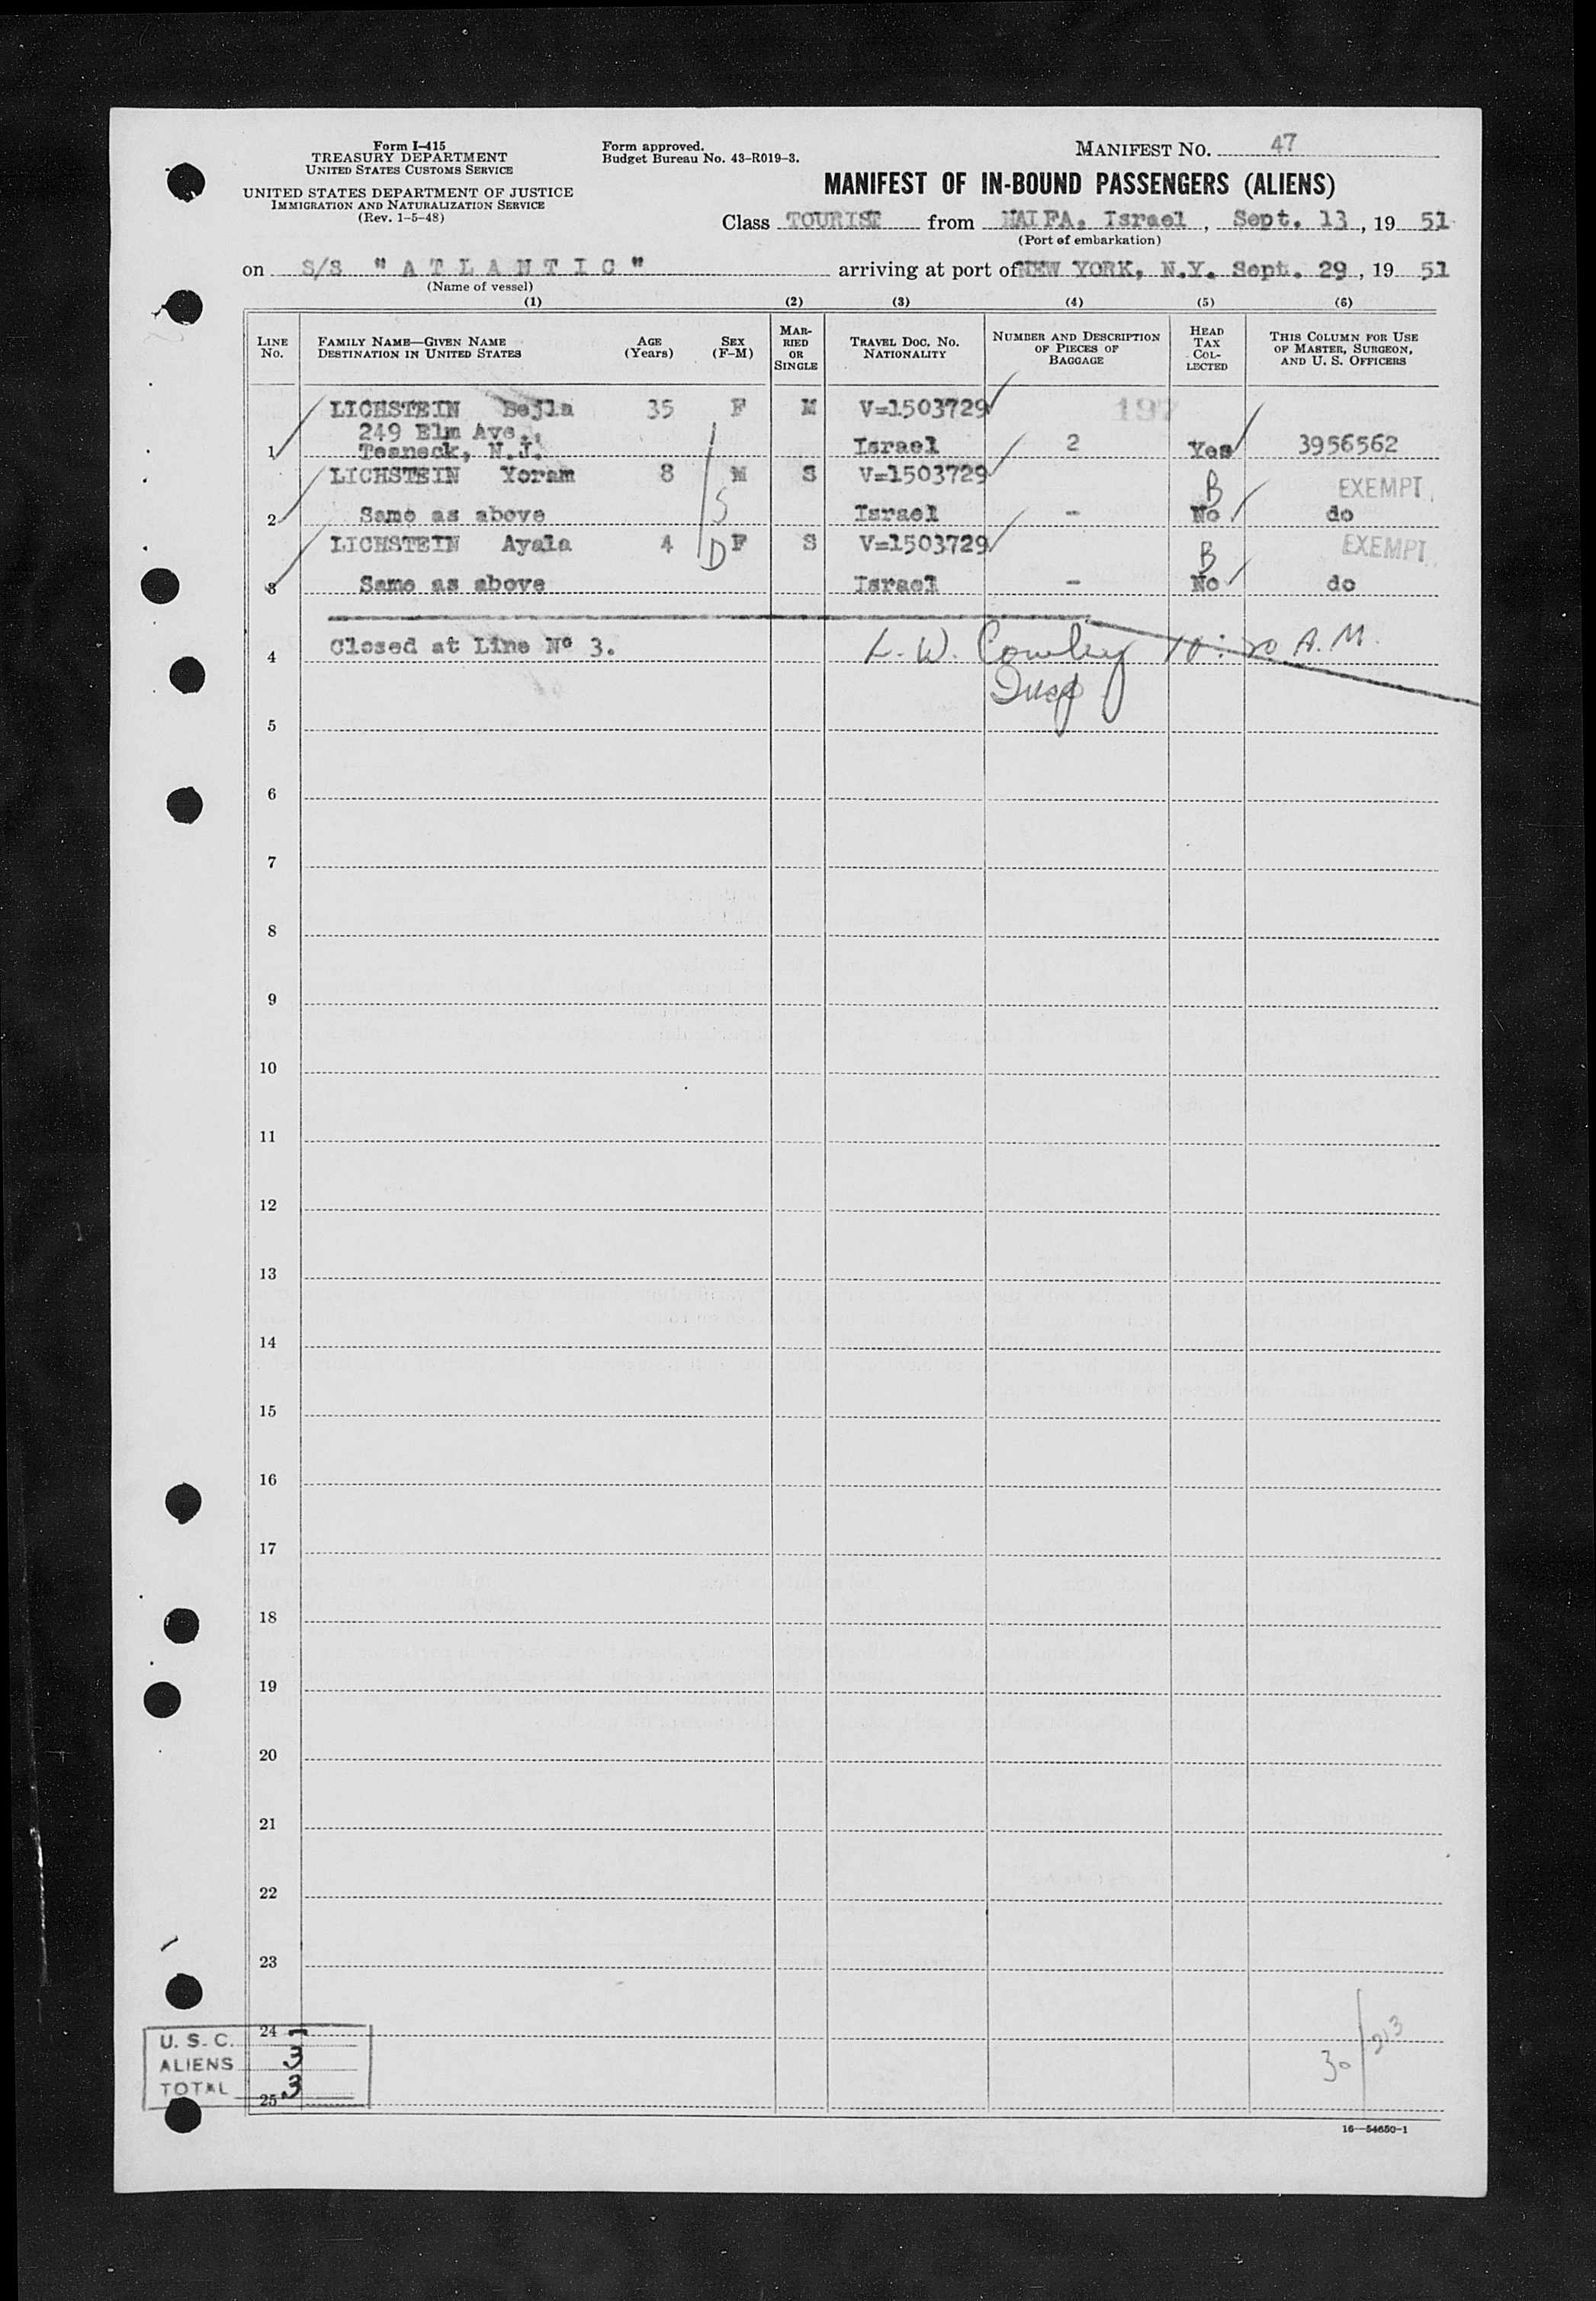 Form I-415
TREASURY DEPARTMENT
UNITED STATES CUSTOMS SERVICE
UNITED STATES DEPARTMENT OF JUSTICE
IMMIGRATION AND NATURALIZATION SERVICE
(Rev. 1-5-48)
Form approved.
Budget Bureau No. 43-R019-3.
MANIFEST NO. 47
MANIFEST OF IN-BOUND PASSENGERS (ALIENS)
Class TOURIST from HAIFA, Israel, Sept. 13, 19 51
(Port of embarkation)
on S/S "ATLANTIC" arriving at port of NEW YORK, N.Y. Sept. 29, 19 51
(Name of vessel)
(1) (2) (3) (4) (5) (6)
LINE No. FAMILY NAME—GIVEN NAME DESTINATION IN UNITED STATES AGE (Years) SEX (F-M) MARRIED OR SINGLE TRAVEL DOC. NO. NATIONALITY NUMBER AND DESCRIPTION OF PIECES OF BAGGAGE HEAD TAX COLLECTED THIS COLUMN FOR USE OF MASTER, SURGEON, AND U. S. OFFICERS
LICHSTEIN Bejla 35 F M V=1503729 197
249 Elm Ave.,
1 Teaneck, N.J. Israel 2 Yes 3956562
LICHSTEIN Yoram 8 M S V=1503729 B EXEMPT
2 Same as above S Israel - No do
LICHSTEIN Ayala 4 D F S V=1503729 B EXEMPT
3 Same as above Israel - No do
4 Closed at Line Nº 3. L. W. A.M.
5
6
7
8
9
10
11
12
13
14
15
16
17
18
19
20
21
22
23
24
25
U. S. C. -
ALIENS 3
TOTAL 3
30/213
16—54650-1